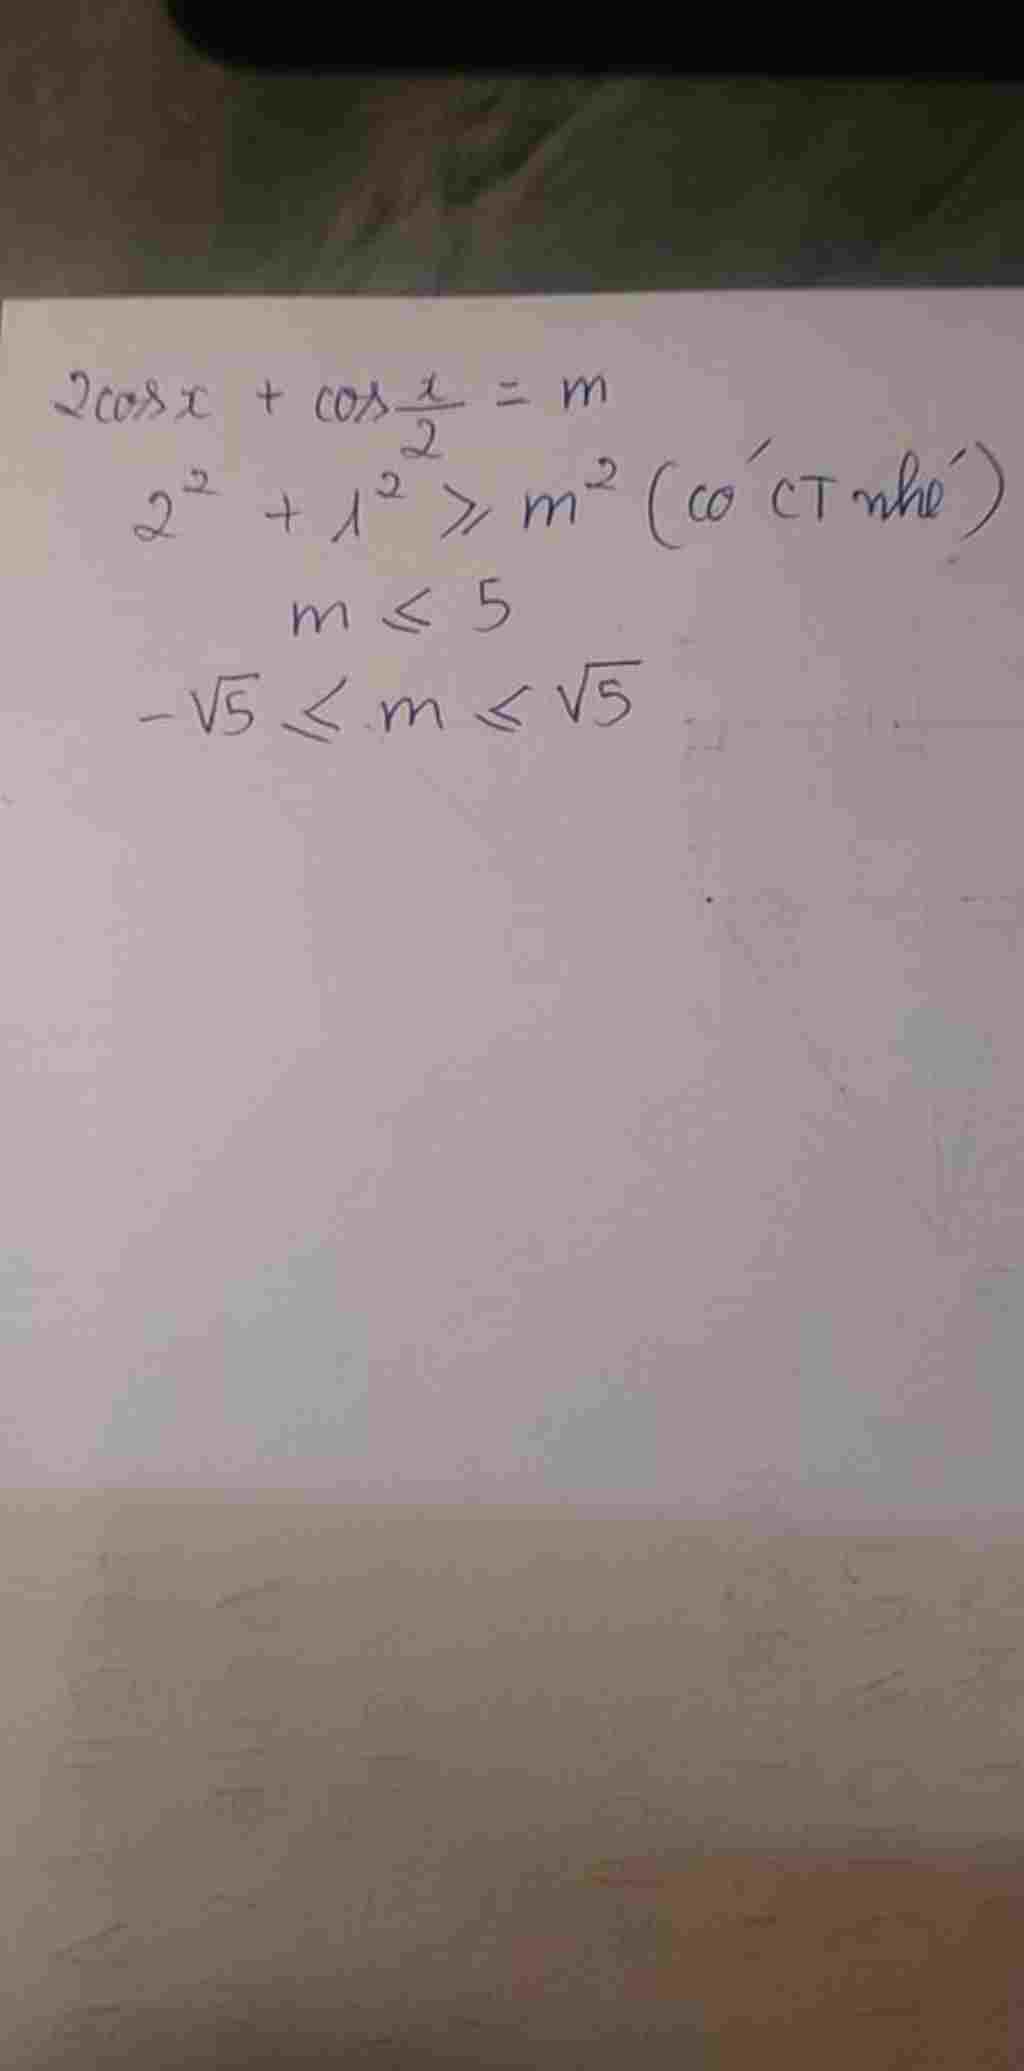 2cosx + cos x/2 = m
2² + 1² ⩾ m² (có CT nhé)
m ⩽ 5
-√5 ⩽ m ⩽ √5